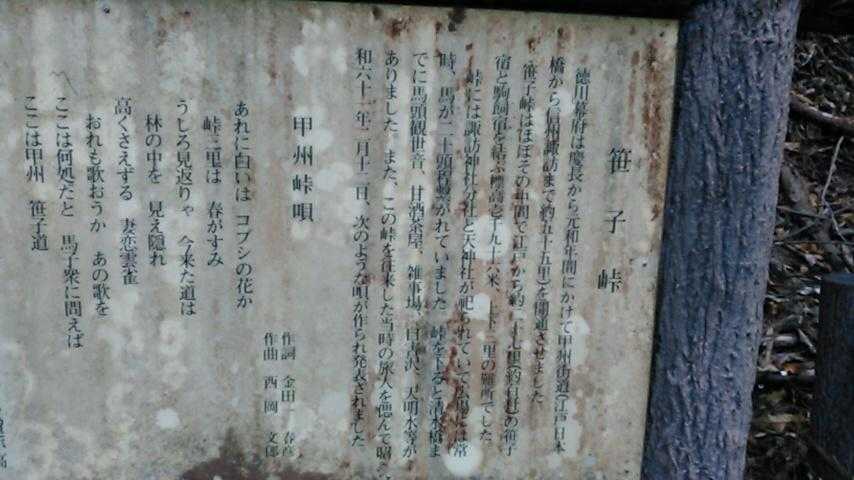 笹子峠
徳川幕府は慶長から元和年間にかけて甲州街道(江戸日本
橋から信州諏訪まで約五十五里)を開通させました
笹子峠はほぼその中間で江戸から約二十七里(約百粁)の笹子
宿と駒飼宿を結ぶ標高壱千九十六米、上下三里の難所でした。
峠には諏訪神社分社と天神社が祀られていて広場には常
時、馬が二十頭程繋がれていました。峠を下ると清水橋ま
でに馬頭観世音、甘酒茶屋、雑事場、自害沢、天明水等が
ありました。また、この峠を往来した当時の旅人を偲んで昭
和六十一年二月十二日、次のような唄が作られ発表されました
甲州峠唄
作詞 金田一 春彦
作曲 西岡 文郎
あれに白いは コブシの花か
峠三里は 春がすみ
うしろ見返りゃ 今来た道は
林の中を 見え隠れ
高くさえずる 妻恋雲雀
おれも歌おうか あの歌を
ここは何処だと 馬子衆に問えば
ここは甲州 笹子道